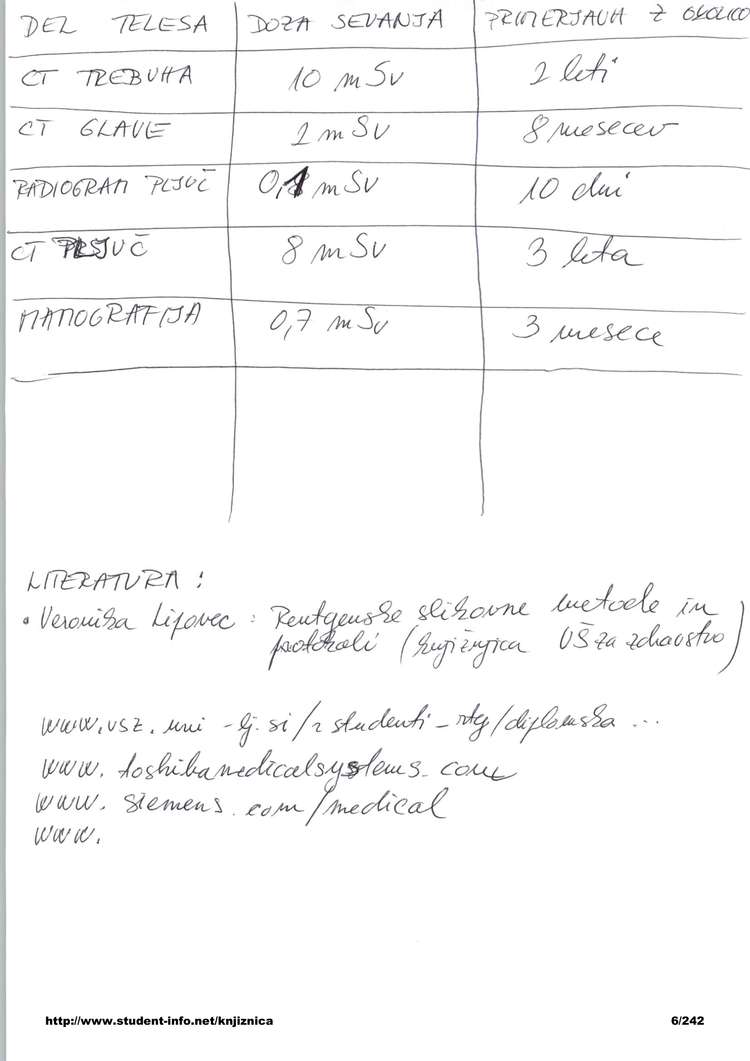 DEL TELESA DOZA SEVANJA PRIMERJAVA Z OKOLICO
CT TREBUHA 10 mSv 2 leti
CT GLAVE 2 mSv 8 mesecev
RADIOGRAM PLJUČ 0,1 mSv 10 dni
CT PLJUČ 8 mSv 3 leta
MAMOGRAFIJA 0,7 mSv 3 mesece
LITERATURA :
• Veronika Lipovec : Rentgenske slikovne metode in
protokoli (knjižnjica VŠ za zdravstvo)
www.vsz.uni-lj.si/2studenti_rtg/diplomska ...
www.toshibamedicalsystems.com
www.siemens.com/medical
www.
http://www.student-info.net/knjiznica 6/242